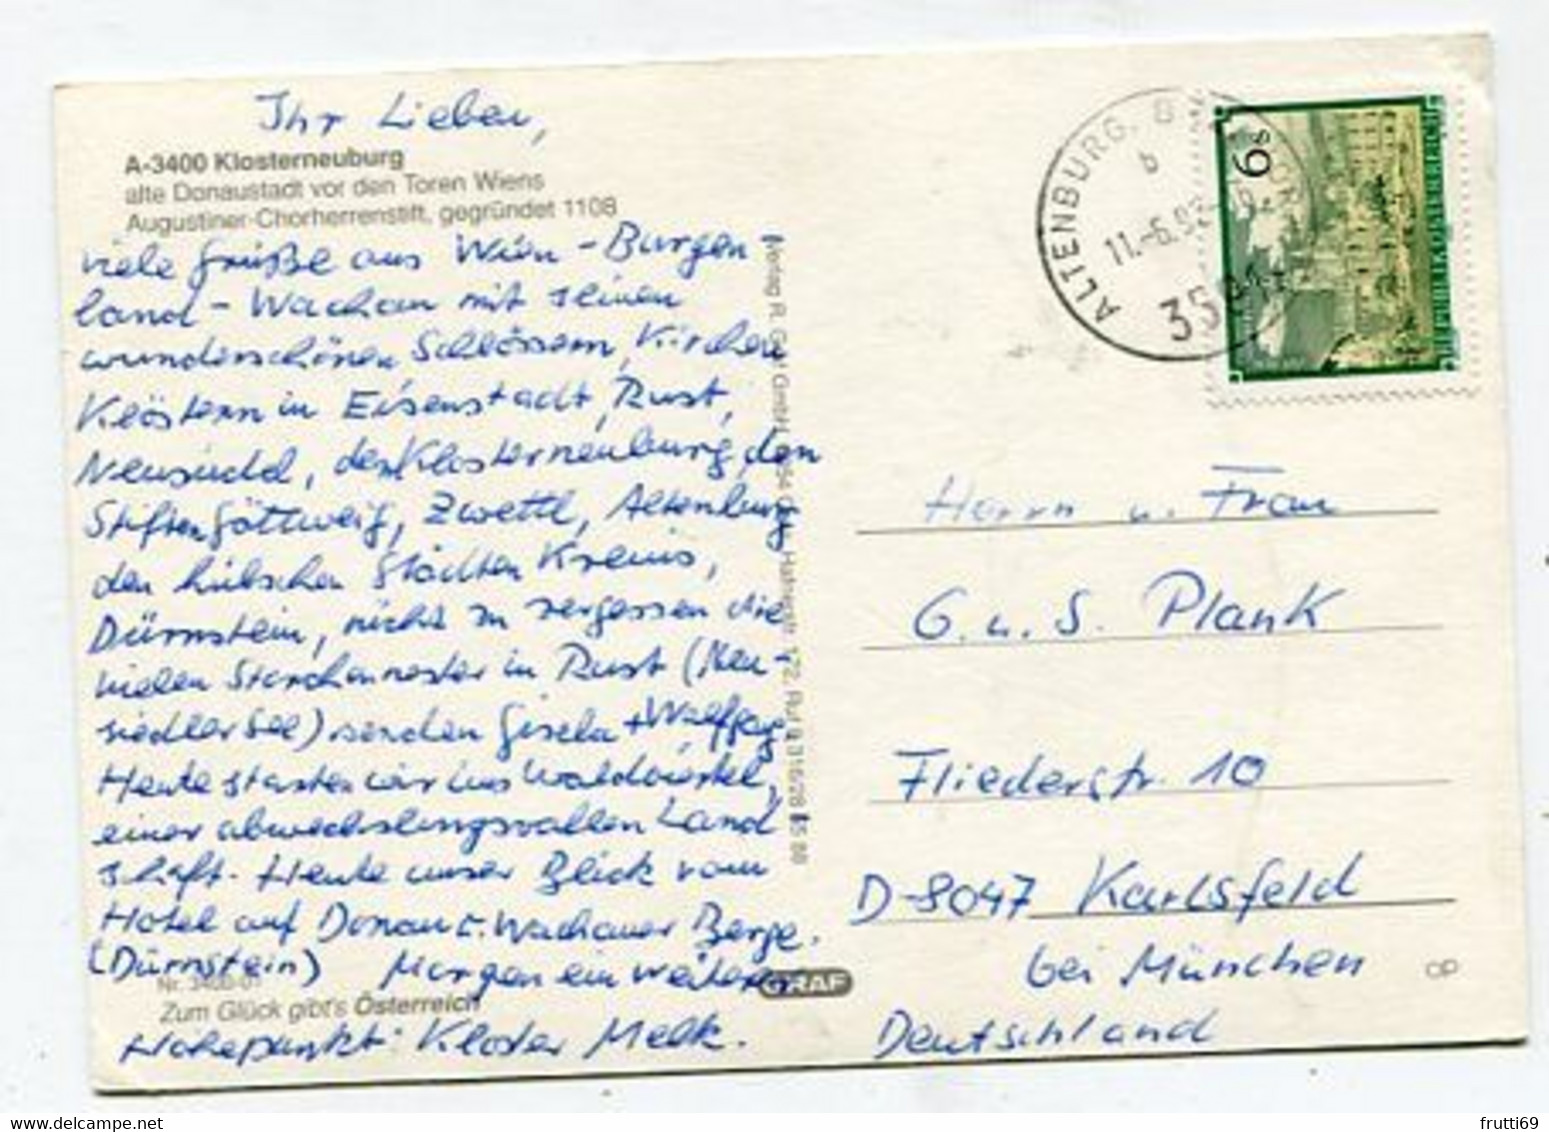 Ihr Lieben,
A-3400 Klosterneuburg
alte Donaustadt vor den Toren Wiens
Augustiner-Chorherrenstift, gegründet 1108
viele Grüße aus Wien - Burgen-
land - Wachau mit seinen
wunderschönen Schlössern, Kirchen
Klöstern in Eisenstadt, Rust,
Neusiedl, den Klosterneuburg, den
Stiften Göttweig, Zwettl, Altenburg
den hübschen Städten Krems,
Dürnstein, nicht zu vergessen die
vielen Storchennester in Rust (Neu-
siedler See) senden Gisela + Wolfgang
Heute starten wir ins Waldviertel,
einer abwechslungsvollen Land
schaft. Heute unser Blick vom
Hotel auf Donau u. Wachauer Berge.
(Dürnstein) Morgen ein weiterer
Nr. 3400-01
Zum Glück gibt's Österreich
Höhepunkt: Kloster Melk.
Verlag R. Graf GmbH
GRAF
ALTENBURG, B
b
11.-6.92
35
6 S
REPUBLIK ÖSTERREICH
Herrn u. Frau
G. u. S. Plank
Fliederstr. 10
D-8047 Karlsfeld
bei München
Deutschland
OP
frutti69